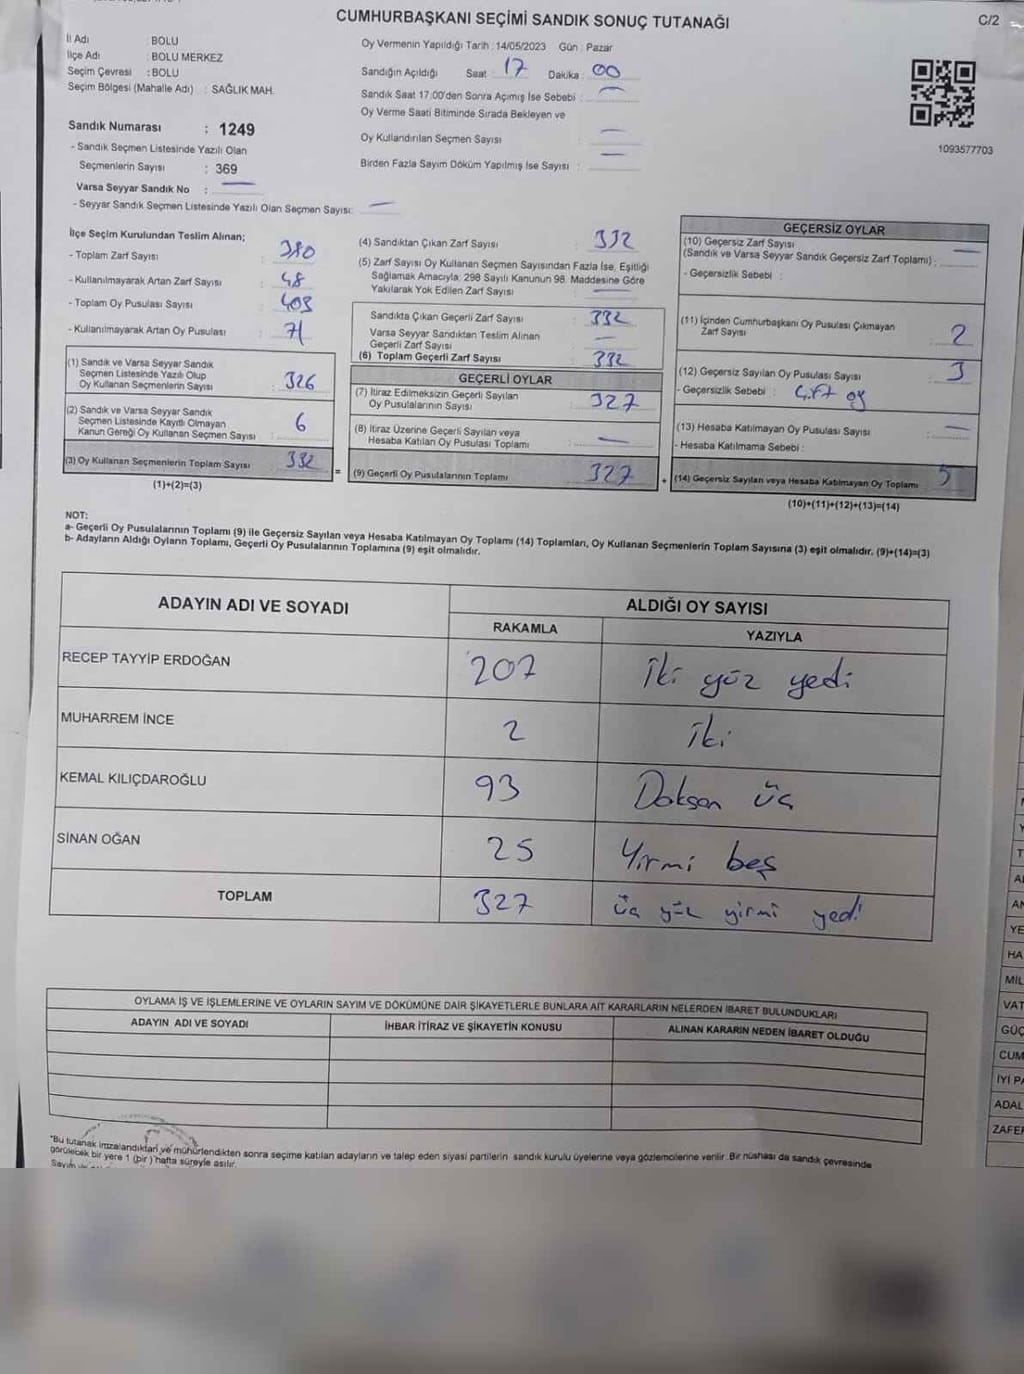 CUMHURBAŞKANI SEÇİMİ SANDIK SONUÇ TUTANAĞI
C/2
İl Adı : BOLU
İlçe Adı : BOLU MERKEZ
Seçim Çevresi : BOLU
Seçim Bölgesi (Mahalle Adı) : SAĞLIK MAH.
Sandık Numarası : 1249
- Sandık Seçmen Listesinde Yazılı Olan
Seçmenlerin Sayısı : 369
Varsa Seyyar Sandık No : —
- Seyyar Sandık Seçmen Listesinde Yazılı Olan Seçmen Sayısı: —
Oy Vermenin Yapıldığı Tarih : 14/05/2023 Gün : Pazar
Sandığın Açıldığı Saat : 17 Dakika : 00
Sandık Saat 17:00'den Sonra Açımış İse Sebebi : —
Oy Verme Saati Bitiminde Sırada Bekleyen ve
Oy Kullandırılan Seçmen Sayısı : —
Birden Fazla Sayım Döküm Yapılmış İse Sayısı : —
1093577703
İlçe Seçim Kurulundan Teslim Alınan;
- Toplam Zarf Sayısı : 380
- Kullanılmayarak Artan Zarf Sayısı : 48
- Toplam Oy Pusulası Sayısı : 403
- Kullanılmayarak Artan Oy Pusulası : 71
(1) Sandık ve Varsa Seyyar Sandık
Seçmen Listesinde Yazılı Olup
Oy Kullanan Seçmenlerin Sayısı : 326
(2) Sandık ve Varsa Seyyar Sandık
Seçmen Listesinde Kayıtlı Olmayan
Kanun Gereği Oy Kullanan Seçmen Sayısı : 6
(3) Oy Kullanan Seçmenlerin Toplam Sayısı 332
(1)+(2)=(3)
(4) Sandıktan Çıkan Zarf Sayısı : 332
(5) Zarf Sayısı Oy Kullanan Seçmen Sayısından Fazla İse, Eşitliği
Sağlamak Amacıyla; 298 Sayılı Kanunun 98. Maddesine Göre
Yakılarak Yok Edilen Zarf Sayısı : —
Sandıkta Çıkan Geçerli Zarf Sayısı : 332
Varsa Seyyar Sandıktan Teslim Alınan
Geçerli Zarf Sayısı : —
(6) Toplam Geçerli Zarf Sayısı : 332
GEÇERLİ OYLAR
(7) İtiraz Edilmeksizin Geçerli Sayılan
Oy Pusulalarının Sayısı : 327
(8) İtiraz Üzerine Geçerli Sayılan veya
Hesaba Katılan Oy Pusulası Toplamı : —
= (9) Geçerli Oy Pusulalarının Toplamı 327
GEÇERSİZ OYLAR
(10) Geçersiz Zarf Sayısı
(Sandık ve Varsa Seyyar Sandık Geçersiz Zarf Toplamı) : —
- Geçersizlik Sebebi :
(11) İçinden Cumhurbaşkanı Oy Pusulası Çıkmayan
Zarf Sayısı : 2
(12) Geçersiz Sayılan Oy Pusulası Sayısı : 3
- Geçersizlik Sebebi : Çift oy
(13) Hesaba Katılmayan Oy Pusulası Sayısı : —
- Hesaba Katılmama Sebebi :
+ (14) Geçersiz Sayılan veya Hesaba Katılmayan Oy Toplamı 5
(10)+(11)+(12)+(13)=(14)
NOT:
a- Geçerli Oy Pusulalarının Toplamı (9) ile Geçersiz Sayılan veya Hesaba Katılmayan Oy Toplamı (14) Toplamları, Oy Kullanan Seçmenlerin Toplam Sayısına (3) eşit olmalıdır. (9)+(14)=(3)
b- Adayların Aldığı Oyların Toplamı, Geçerli Oy Pusulalarının Toplamına (9) eşit olmalıdır.
ADAYIN ADI VE SOYADI
ALDIĞI OY SAYISI
RAKAMLA YAZIYLA
RECEP TAYYİP ERDOĞAN 207 İki yüz yedi
MUHARREM İNCE 2 İki
KEMAL KILIÇDAROĞLU 93 Doksan üç
SİNAN OĞAN 25 Yirmi beş
TOPLAM 327 üç yüz yirmi yedi
OYLAMA İŞ VE İŞLEMLERİNE VE OYLARIN SAYIM VE DÖKÜMÜNE DAİR ŞİKAYETLERLE BUNLARA AİT KARARLARIN NELERDEN İBARET BULUNDUKLARI
ADAYIN ADI VE SOYADI İHBAR İTİRAZ VE ŞİKAYETİN KONUSU ALINAN KARARIN NEDEN İBARET OLDUĞU
*Bu tutanak imzalandıktan ve mühürlendikten sonra seçime katılan adayların ve talep eden siyasi partilerin sandık kurulu üyelerine veya gözlemcilerine verilir. Bir nüshası da sandık çevresinde
görülecek bir yere 1 (bir) hafta süreyle asılır.
VAT
GÜÇ
CUM
İYİ PA
ADAL
ZAFER